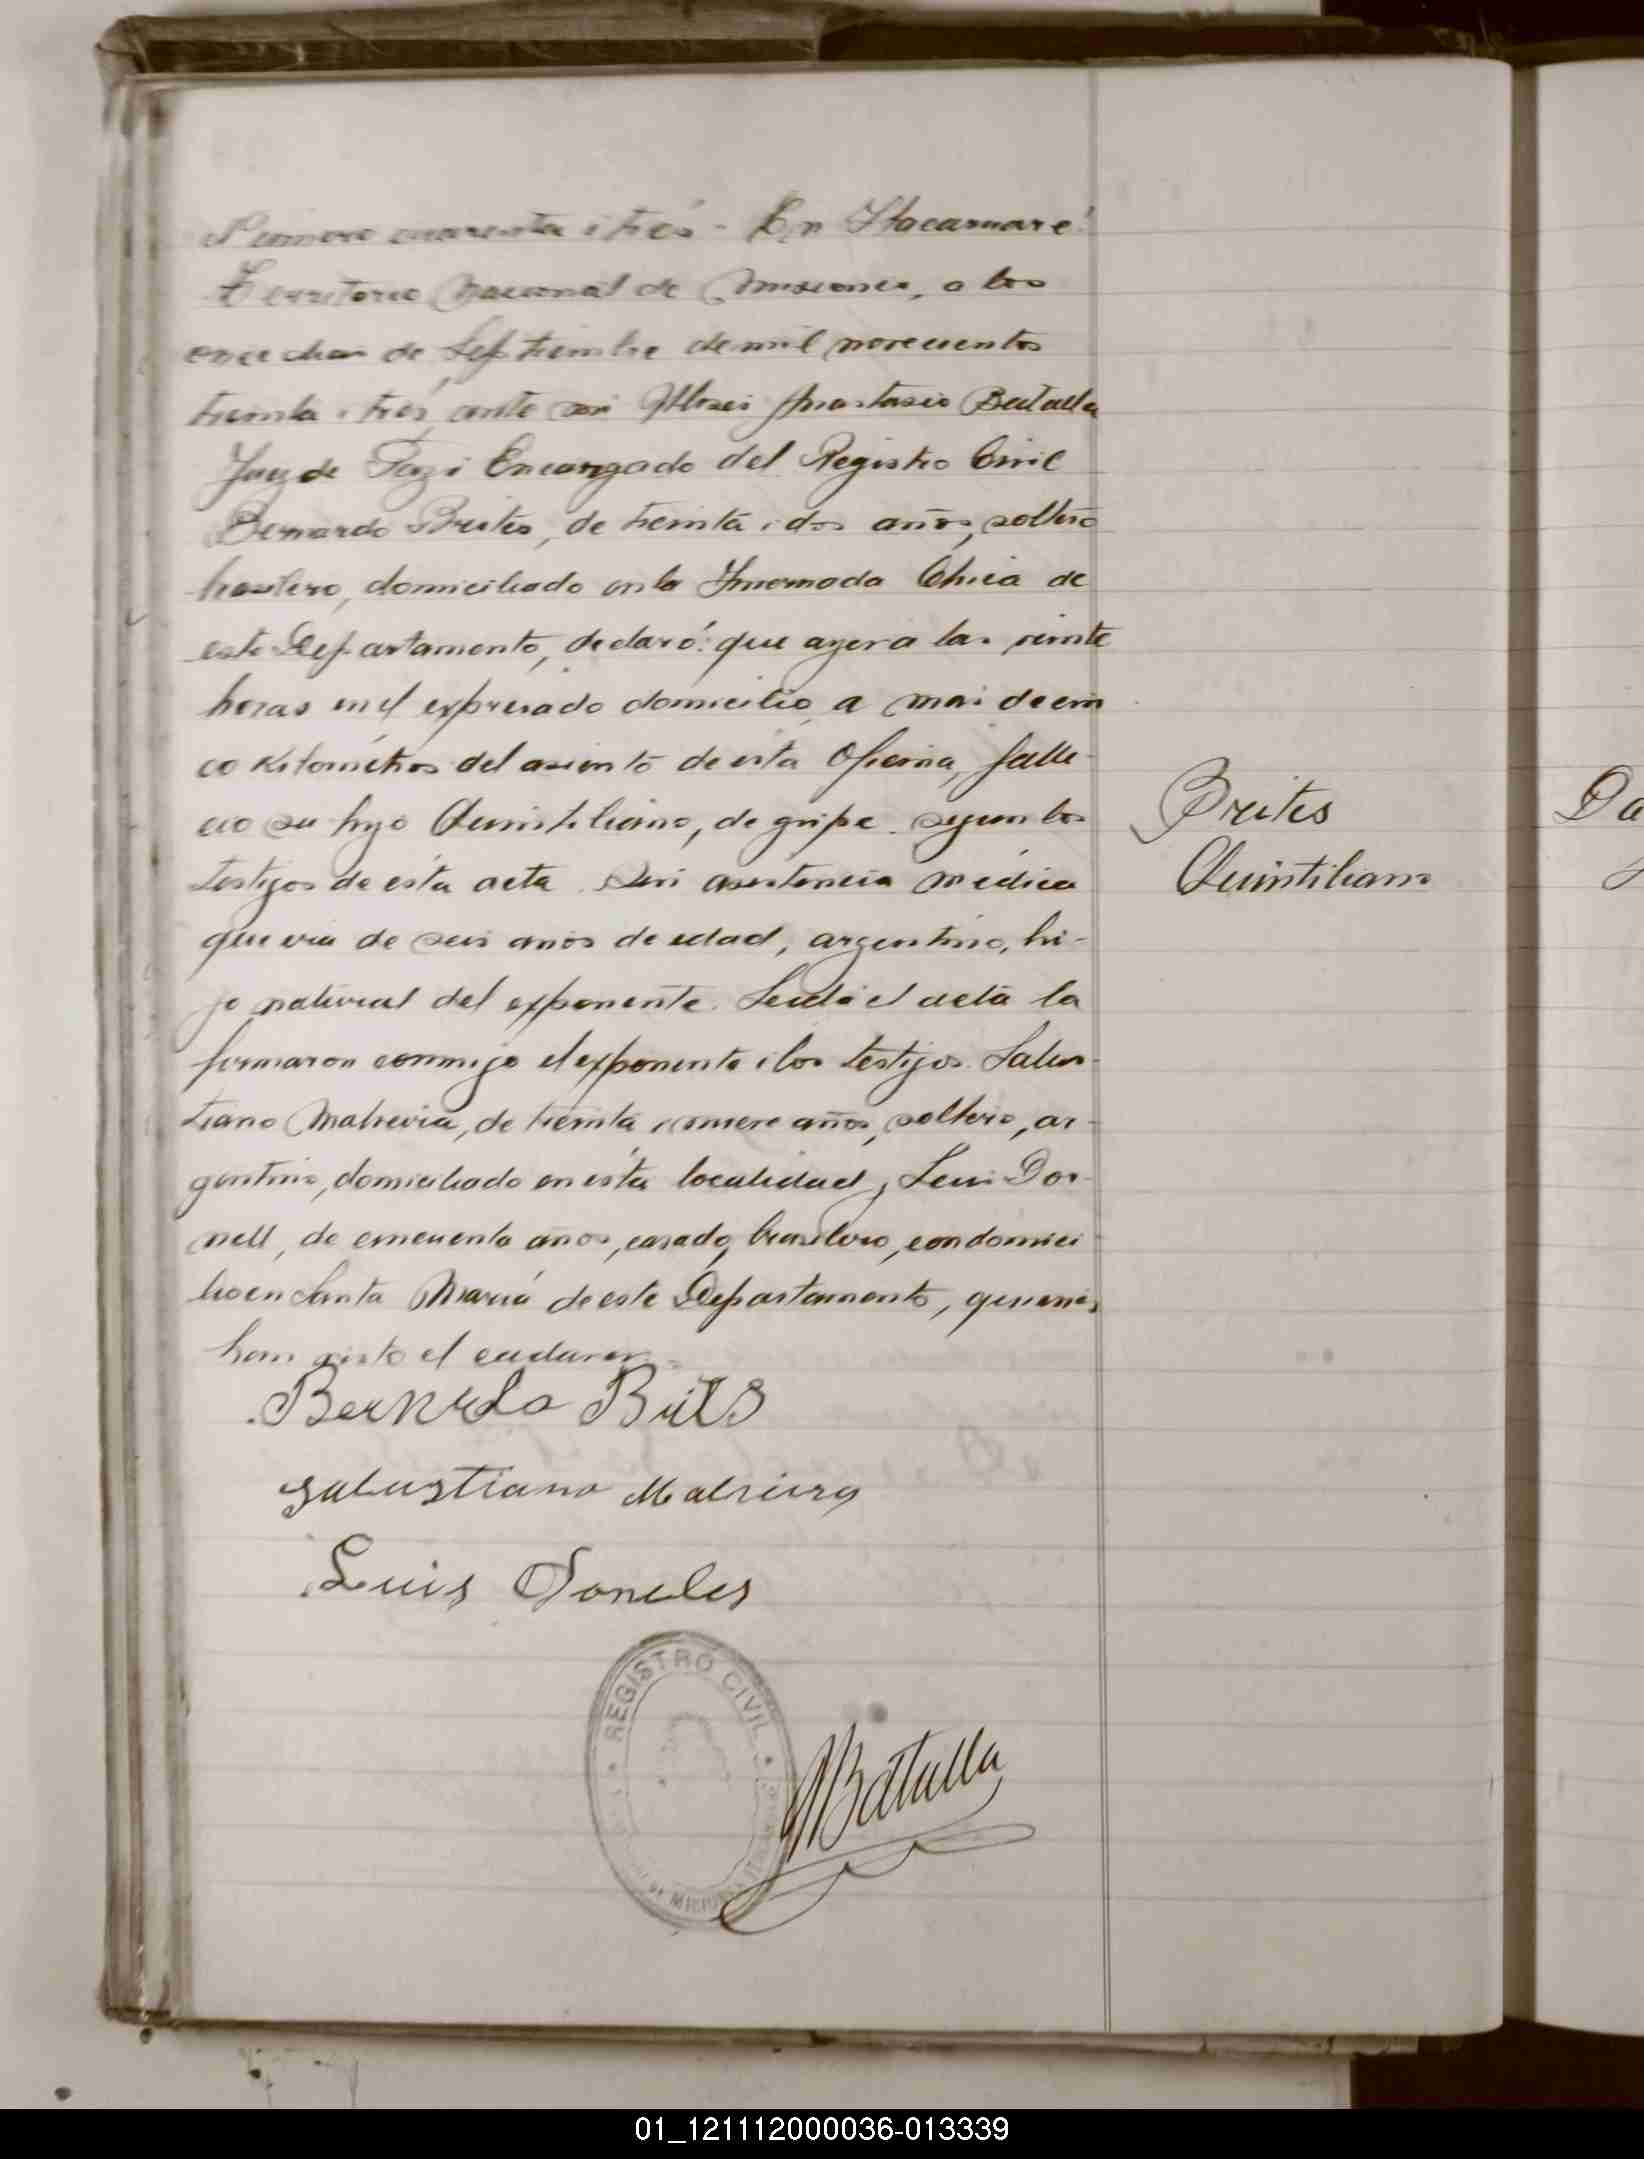 Número cuarenta i tres - En Itacaruaré
Territorio Nacional de Misiones, a los
once dias de Septiembre de mil novecientos
treinta i tres, ante mi Anastasio Batalla
Juez de Paz i Encargado del Registro Civil
Bernardo Brites, de treinta i dos años, soltero
brasilero, domiciliado en la Invernada Chica de
este Departamento, declaró: que ayer a las veinte
horas en el expresado domicilio, a mas de cin
co kilométros del asiento de esta Oficina, falle-
cio su hijo Quintiliano, de gripe segun los
testigos de esta acta. Sin asistencia médica
que era de seis años de edad, argentino, hi-
jo natural del exponente. Leida el acta la
firmaron conmigo el exponente i los testigos. Salus-
tiano Malveira, de treinta i nueve años, soltero, ar-
gentino, domiciliado en esta localidad, Luis Dor-
nell, de cincuenta años, casado, brasilero, con domici
lio en Santa María de este Departamento, quienes
han visto el cadaver.
Brites
Quintiliano
Da
Bernardo Brites
Salustiano Malveira
Luis Dorneles
REGISTRO CIVIL
ABatalla
01_121112000036-013339